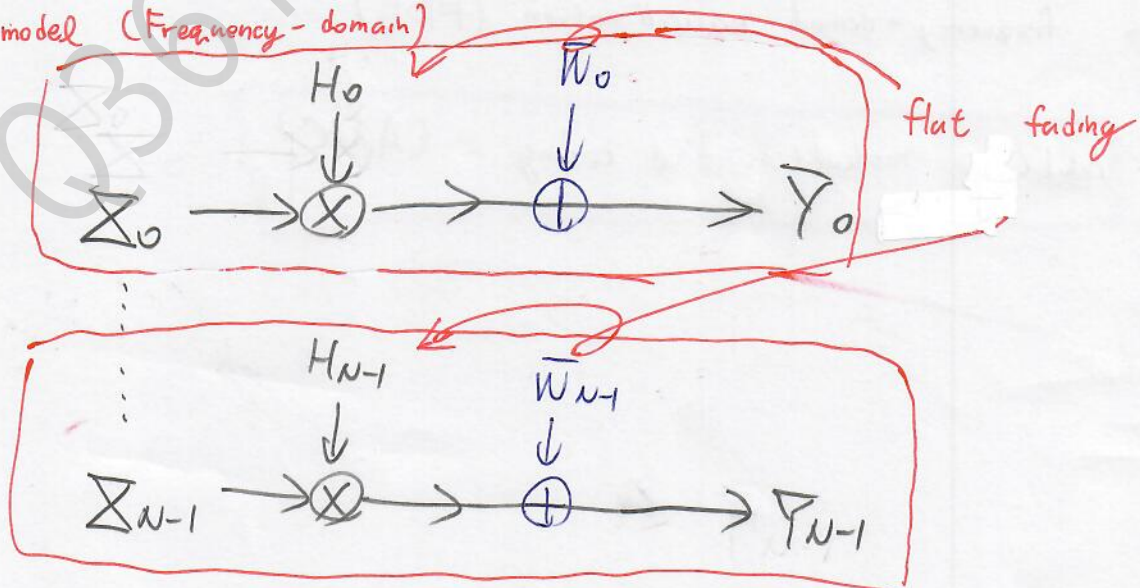 model (Frequency-domain)
H₀ W̅₀
flat fading
X₀ Y₀
H_{N-1} W̅_{N-1}
X_{N-1} Y_{N-1}